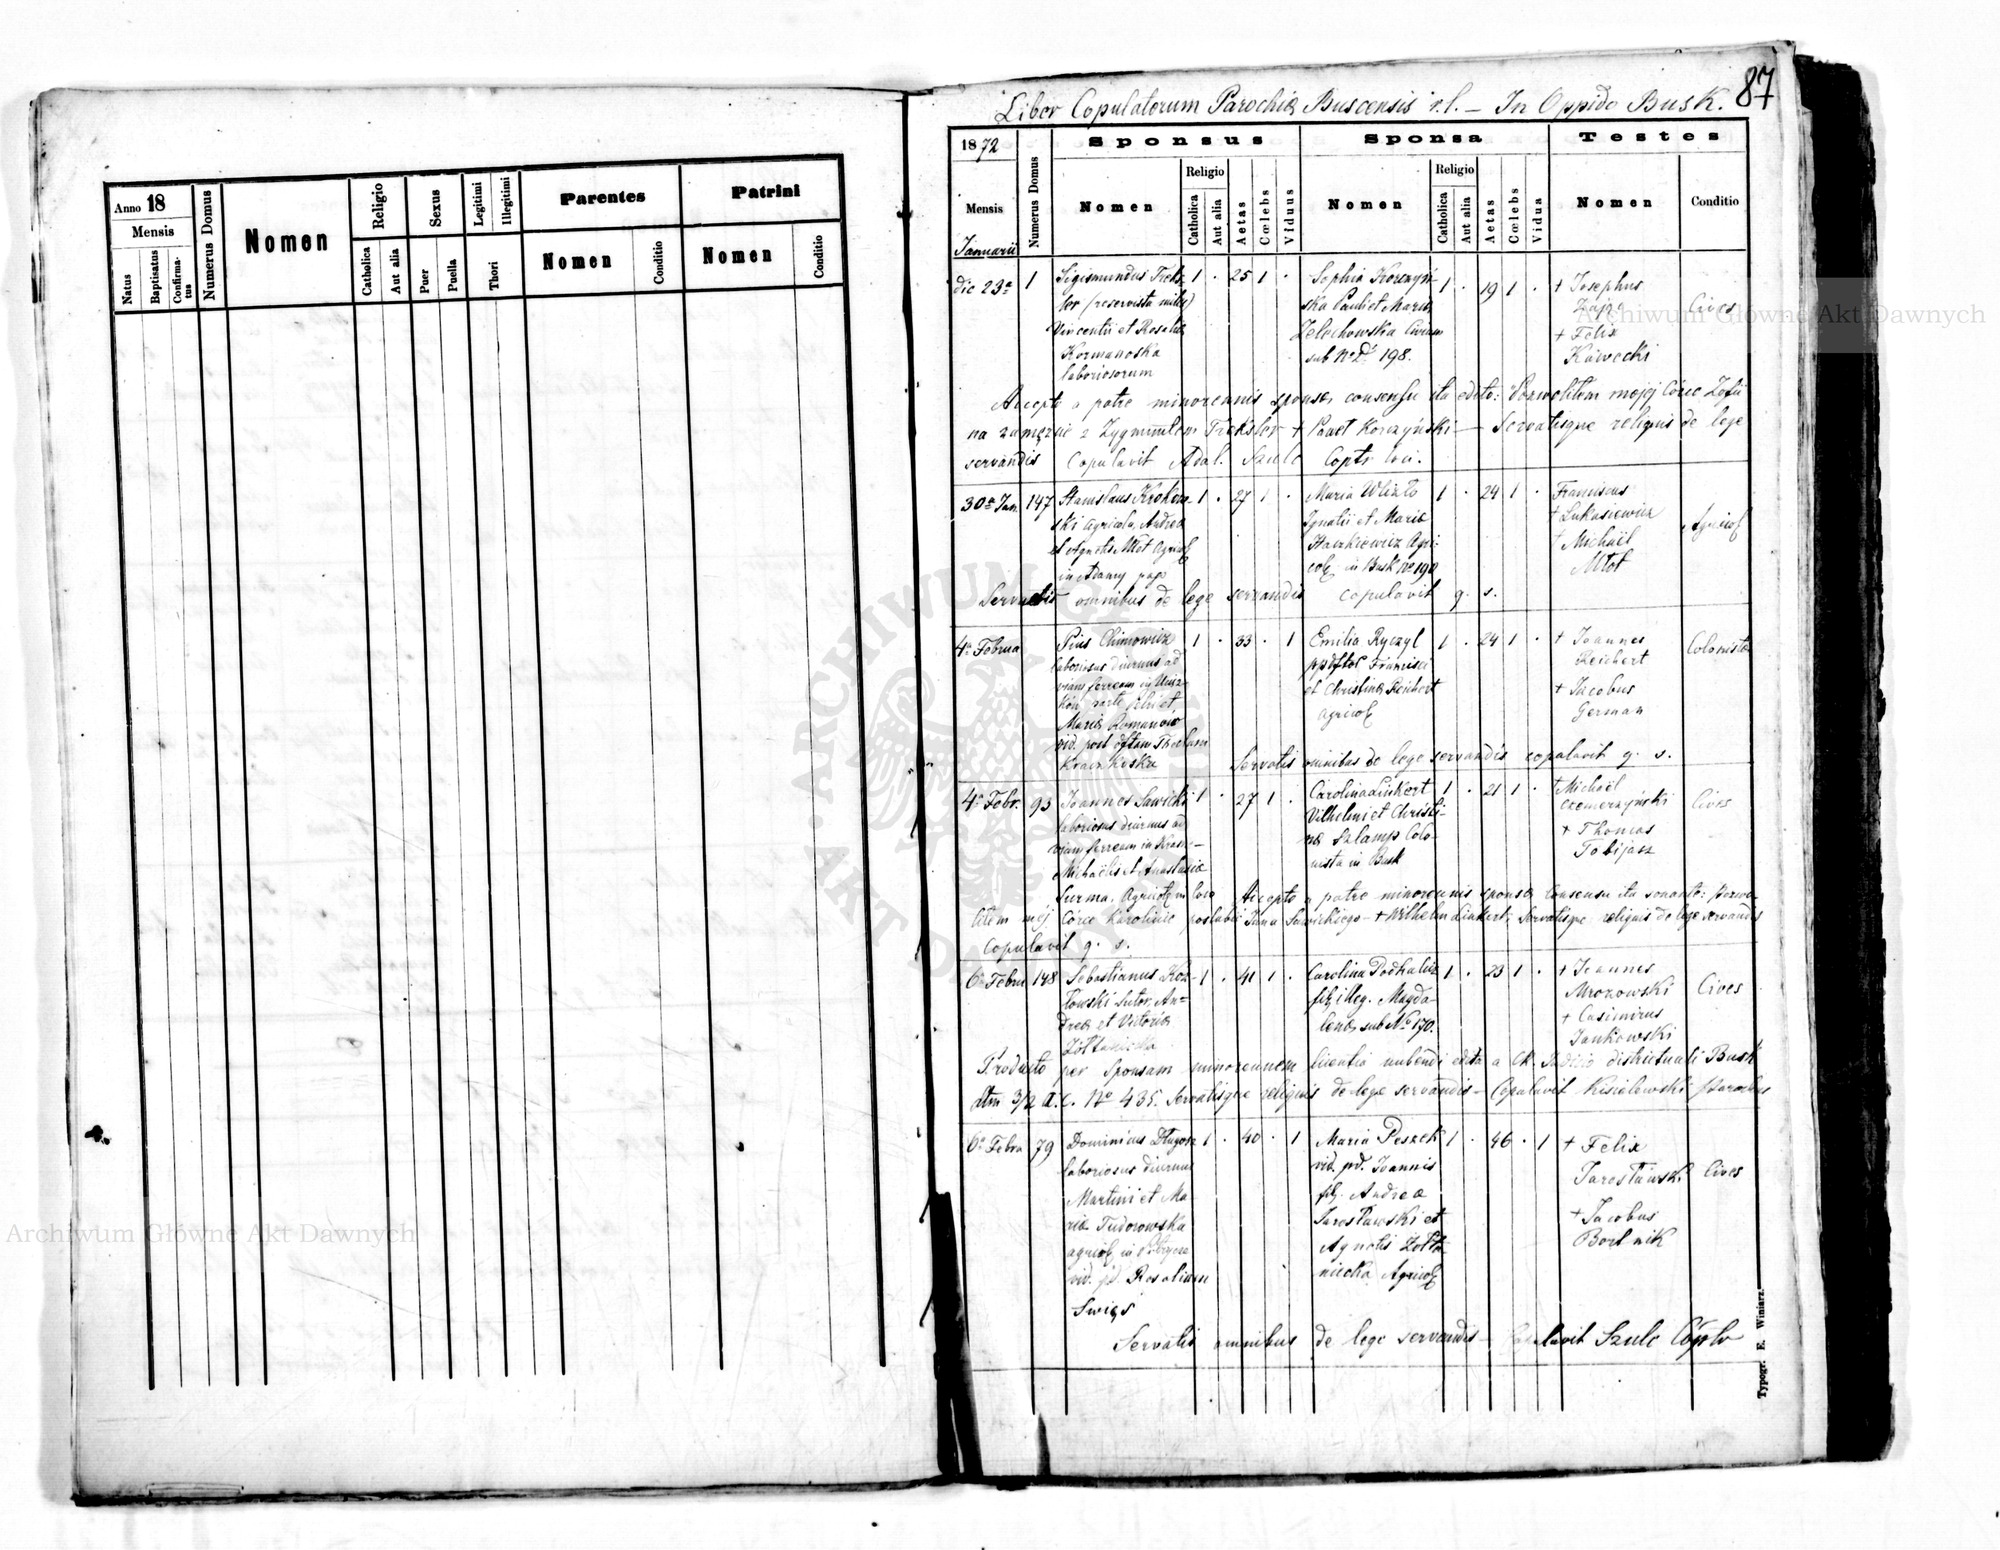 Anno 18
Mensis
Natus
Baptisatus
Confirma-
tus
Numerus Domus
Nomen
Religio
Catholica
Aut alia
Sexus
Puer
Puella
Legitimi
Illegitimi
Thori
Parentes
Nomen
Conditio
Patrini
Nomen
Conditio
Archiwum Główne Akt Dawnych
87
Liber Copulatorum Parochiæ Buscensis r. l. – In Oppido Busk.
1872
Mensis
Numerus Domus
Sponsus
Nomen
Religio
Catholica
Aut alia
Aetas
Cœlebs
Viduus
Sponsa
Nomen
Religio
Catholica
Aut alia
Aetas
Cœlebs
Vidua
Testes
Nomen
Conditio
Januarii
die 23a 1 Sigismundus 1 . 25 1 . Sophia Korczyń- 1 . 19 1 . + Josephus
(reservista miles) ska Pauli et Mariæ Cives
Vincentii et Rosaliæ Żelechowska Civium + Felix
sub No 198. Kawecki
laboriosorum
Accepto a patre minorennis sponsæ consensu ita edito: Pozwoliłem mojej Córce Zofii
na zamęzcie z Zygmuntem Treksler + Paweł Korczyński – Servatisque reliquis de lege
servandis Copulavit Adal. Szulc Coptr loci.
30a Jan. 147 Stanislaus 1 . 27 1 . Maria 1 . 24 1 . Franciscus
ski agricola, Andreæ Ignatii et Mariæ + Łukasiewicz Agricolæ
et Agnetis Młot agricolæ Agri- + Michaël
colæ in Busk No 190 Młot
Servatis omnibus de lege servandis copulavit q. s.
4a Februa Pius Chimowicz 1 . 33 . 1 Emilia Ryczyl 1 . 24 1 . + Joannes Colonistæ
laboriosus diurnus ad Francisci Reichert
viam ferream in et Christinæ Reichert + Jacobus
agricolæ German
Mariæ Romanow
vid. post Theclam
Servatis omnibus de lege servandis copulavit q. s.
4a Febr. 93 Joannes Sawicki 1 . 27 1 . Carolina Linkert 1 . 21 1 . + Michaël
laboriosus diurnus ad Vilhelmi et Christi- Czemerzyński Cives
viam ferream in Krasne næ Szlamp Colo- + Thomas
Michaëlis et Anastasiæ nista in Busk Tobijasz
Surma, Agricolæ in loco Accepto a patre minorennis sponsæ Consensu ita sonanto: pozwo-
liłem mej Córce Karolinie poslubić Jana Sawickiego – + Wilhelm Linkert; Servatisque reliquis de lege servandis
Copulavit q. s.
6a Februa 148 Sebastianus Koz- 1 . 41 1 . Carolina Podhalicz 1 . 23 1 . + Joannes
łowski Sutor, An- filiæ illeg. Magda- Mrozowski Cives
dreæ et Victoriæ lenæ sub No 170. + Casimirus
Jankowski
Producto per Sponsam minorennem licentia nubendi edita a CK. Judicio districtuali Busk
dtm 3/2 a. c. No 435. Servatisque reliquis de lege servandis – Copulavit Kisielewski Parochus
6a Febra 79 Dominicus Długosz 1 . 40 . 1 Maria Peszek 1 . 46 . 1 + Felix
laboriosus diurnus vid. pd. Joannis Jarosławski Cives
Martini et Ma- fil. Andreæ + Jacobus
riæ Tudorowska Jarosławski et Bortnik
agricolæ in Agnetis Zołta-
vid. pd. Rosaliam niecka Agricolæ
Swięs
Servatis omnibus de lege servandis – Copulavit Szulc Cooptr
Typogr. E. Winiarz.
Archiwum Główne Akt Dawnych
ARCHIWUM GŁÓWNE AKT DAWNYCH